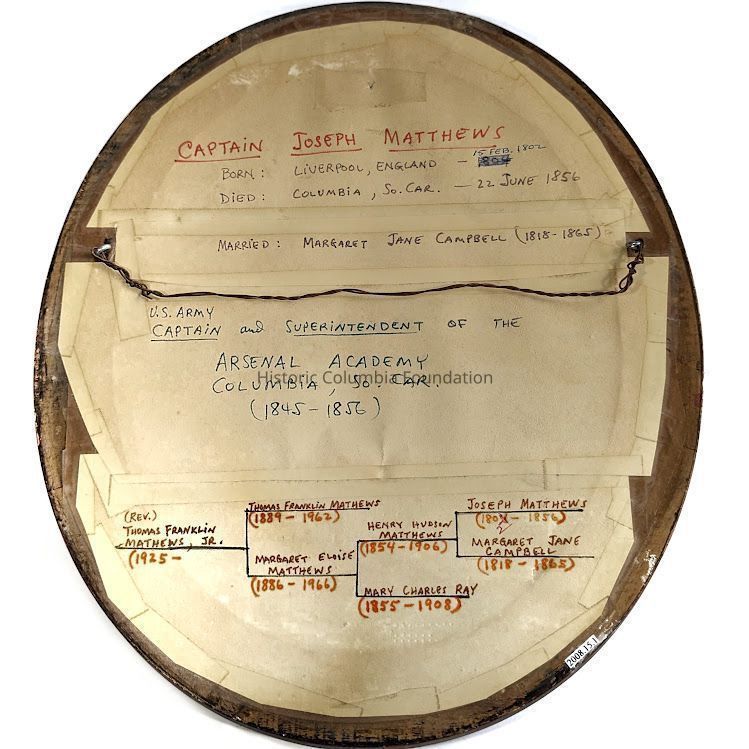 CAPTAIN JOSEPH MATTHEWS
15 FEB. 1802
BORN: LIVERPOOL, ENGLAND — 1804
DIED: COLUMBIA, SO. CAR. — 22 JUNE 1856
MARRIED: MARGARET JANE CAMPBELL (1818-1865)
U.S. ARMY
CAPTAIN and SUPERINTENDENT OF THE
ARSENAL ACADEMY
COLUMBIA, SO. CAR.
(1845-1856)
Historic Columbia Foundation
(REV.)
THOMAS FRANKLIN
MATHEWS, JR.
(1925 -
THOMAS FRANKLIN MATHEWS
(1889 - 1962)
MARGARET ELOISE
MATTHEWS
(1886 - 1966)
HENRY HUDSON
MATTHEWS
(1854-1906)
MARY CHARLES RAY
(1855-1908)
JOSEPH MATTHEWS
(1802 - 1856)
MARGARET JANE
CAMPBELL
(1818 - 1865)
2008.15.1